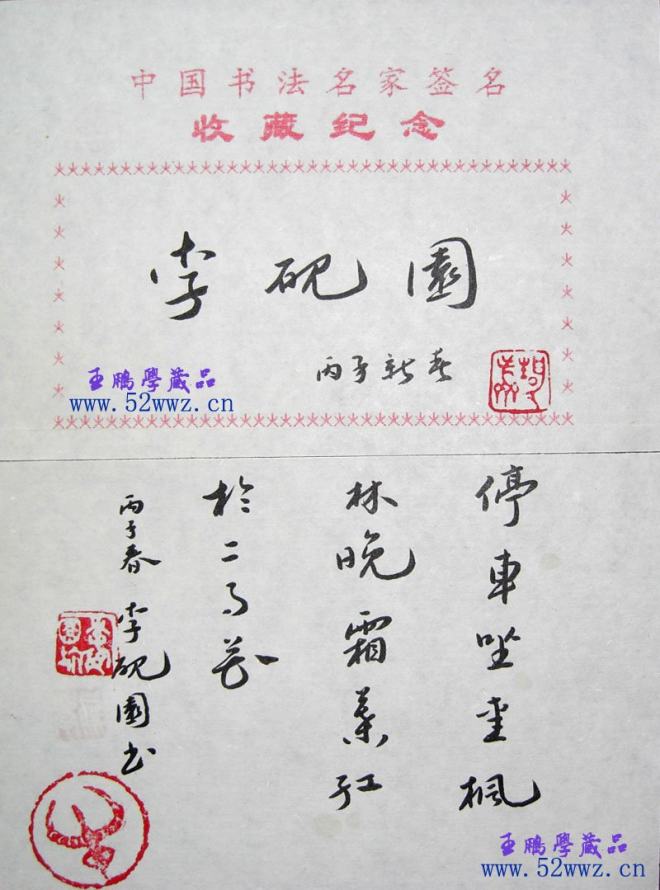 中国书法名家签名
收藏纪念
李砚園
丙子新春
王鹏學藏品
www.52wwz.cn
停車坐愛楓
林晚霜葉紅
於二月花
丙子春 李砚園书
王鹏學藏品
www.52wwz.cn